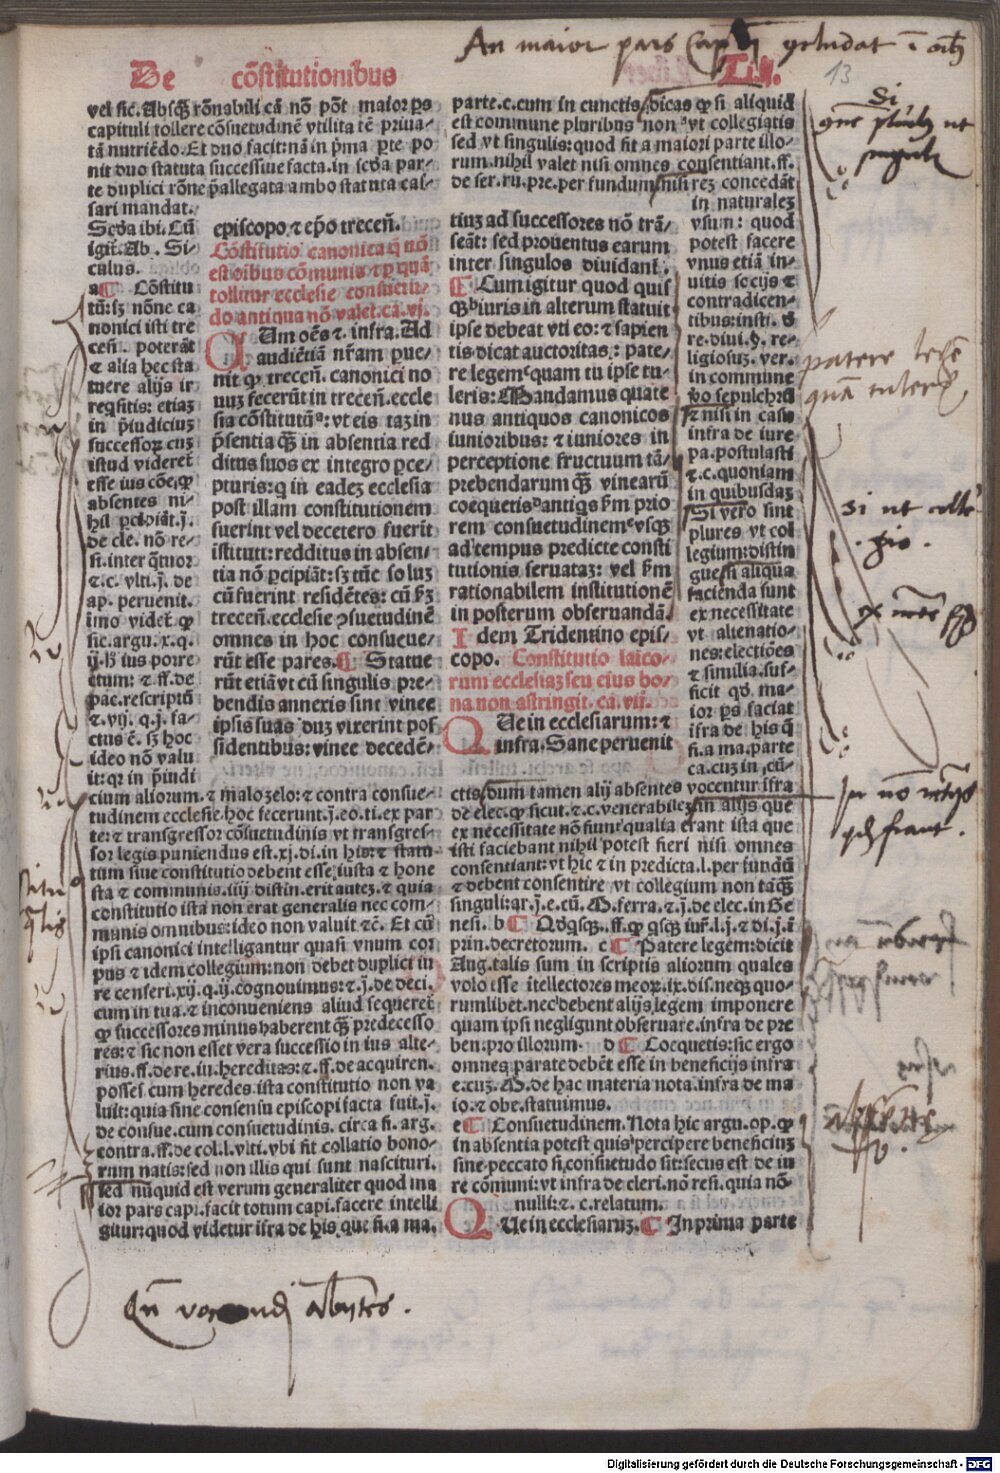 An maior pars Capli
13
De cõstitutionibus
vel sic. Absq̃ rõnabili cã nõ põt maior ps
capituli tollere cõsuetudinẽ vtilita tẽ priua-
tã nutriẽdo. Et duo facit: nã in p̃ma pte po
nit duo statuta successiue facta. in scða par-
te duplici rõne p̃allegata ambo statuta cas-
sari mandat.
Scða ibi. Cũ
igit̃. Ab. Si-
culus.
a ¶ Cõstitu
tũ: sꝫ nõne ca
nonici isti tre
cen̄. poterãt
⁊ alia hec sta
tuere alijs ir
reqsitis: etiaꝫ
in p̃iudiciuꝫ
successoꝝ cuꝫ
istud videret̃
esse ius cõe, ꝙ
absentes ni-
hil pcipiãt. j.
de cle. nõ re-
si. inter q̃tuor
⁊.c. vlti. j. de
ap. peruenit.
imo videt̃ ꝙ
sic. argu. x. q.
ij. hͦ ius porre
ctum: ⁊ ff. de
pac. rescriptũ
⁊. vij. q. j. fa-
ctus ẽ. sꝫ hoc
ideo nõ valu
it: qꝛ in p̃iudi
cium aliorum. ⁊ malo zelo: ⁊ contra consue-
tudinem ecclesie hoc fecerunt. j. eo. ti. ex par
te: ⁊ transgressor cõsuetudinis vt transgres-
sor legis puniendus est. xj. di. in his: ⁊ statu
tum siue constitutio debent esse, iusta ⁊ hone
sta ⁊ communis. iiij distin. erit autez. ⁊ quia
constitutio ista non erat generalis nec com-
munis omnibus: ideo non valuit ⁊c̃. Et cũ
ipsi canonici intelligantur quasi vnum cor
pus ⁊ idem collegium: non debet duplici iu
re censeri. xij. q. ij. cognouimus: ⁊ .j. de deci.
cum in tua. ⁊ inconueniens aliud sequeret̃
ꝙ successores minus haberent q̃ꝫ predecesso
res: ⁊ sic non esset vera successio in ius alte-
rius. ff. de re. iu. hereditas: ⁊. ff. de acquiren.
posses. cum heredes. ista constitutio non va
luit: quia sine consensu episcopi facta fuit. j.
de consue. cum consuetudinis. circa fi. arg.
contra. ff. de col. l. vlti. vbi fit collatio bono-
rum natis: sed non illis qui sunt nascituri.
sed nũquid est verum generaliter quod ma
ior pars capi. facit totum capi. facere intelli
gitur: quod videtur iĩra de his que fi. a ma.
episcopo. ⁊ ep̃o trecen̄.
Cõstitutio canonica q̃ nõ
est oĩbus cõmunis ⁊ p quã
tollitur ecclesie consuetu-
do antiqua nõ valet. ca. vj.
QUm oẽs ⁊. infra. Ad
audiẽtiã nr̃am pue-
nit ꝙ trecen̄. canonici no
uuꝫ fecerũt in trecen̄. eccle
sia cõstitutũᵃ: vt eis taꝫ in
p̃sentia q̃ꝫ in absentia red
ditus suos ex integro pce-
pturis: q in eadeꝫ ecclesia
post illam constitutionem
fuerint vel decetero fuerit
iſtituti: redditus in absen-
tia nõ pcipiãt: sꝫ tũc soluꝫ
cũ fuerint residẽtes: cũ ẜꝫ
trecen̄. ecclesie ꝯsuetudinẽ
omnes in hoc consueue-
rũt esse pares. ¶ Statue
rũt etiã vt cũ singulis pre-
bendis annexis sint vinee
ipsis suas duꝫ vixerint pos
sidentibus: vinee decedẽ-
tiuꝫ ad successores nõ trã-
seãt: sed prouentus earum
inter singulos diuidant̃.
¶ Cum igitur quod quis
qꝫ iuris in alterum statuit
ipse debeat vti eo: ⁊ sapien
tis dicat auctoritas: pate-
re legemᶜ quam tu ipse tu-
leris: Mandamus quate
nus antiquos canonicos
iunioribus: ⁊ iuniores in
perceptione fructuum tã-
prebendarum q̃ꝫ vinearũ
coequetisᵈ antiqs ẜm prio
rem consuetudinemᵉ vsqꝫ
ad tempus predicte consti
tutionis seruataꝫ: vel ẜm
rationabilem institutionẽ
in posterum obseruandã.
Idem Tridentino epis-
copo. Constitutio laico-
rum ecclesiaꝫ seu eius bo-
na non astringit. ca. vij.
QUe in ecclesiarum: ⁊
infra. Sane peruenit
parte. c. cum in cunctis. dicas ꝙ si aliquid
est commune pluribus non vt collegiatis
sed vt singulis: quod fit a maiori parte illo-
rum. nihil valet nisi omnes consentiant. ff.
de ser. ru. pre. per fundum. nisi reꝫ concedãt
in naturaleꝫ
vsum: quod
potest facere
vnus etiã in-
uitis socijs ⁊
contradicen-
tibus: insti. ð
re. diui. §. re-
ligiosuꝫ. ver.
in commune
ꝟo sepulchrũ
⁊ nisi in casu
infra de iure
pa. postulasti
⁊. c. quoniam
in quibusdaꝫ
Si vero sint
plures vt col
legium: distin
gue si aliqua
facienda sunt
ex necessitate
vt alienatio-
nes: electiões
⁊ similia. suf-
ficit qð ma-
ior ps faciat
iĩra de his q̃
fi. a ma. parte
ca. cuꝫ in, cũ-
ctis. dum tamen alij absentes vocentur iĩra
de elec. ꝙ sicut. ⁊ c. venerabileꝫ. in alijs que
ex necessitate nõ fiunt qualia erant ista que
isti faciebant nihil potest fieri nisi omnes
consentiant: vt hic ⁊ in predicta. l. per fundũ
⁊ debent consentire vt collegium non taq̃ꝫ
singuli: ar. j. e. cũ. M. ferra. ⁊ .j. de elec. in Ge
nesi. b ¶ Qðqsqꝫ. ff. ꝙ qsqꝫ iur̃. l. j. ⁊ di. j. ĩ
prin. decretorum. c ¶ Patere legem: dicit
Aug. talis sum in scriptis aliorum quales
volo esse ĩtellectores meoꝝ. ix. dis. neqꝫ quo-
rumlibet. nec debent alijs legem imponere
quam ipsi negligunt obseruare. infra de pre
ben. pro illorum. d ¶ Cocquetis: sic ergo
omnes parate debẽt esse in beneficijs infra
e. cuꝫ. M. de hac materia nota. infra de ma
io. ⁊ obe. statuimus.
e ¶ Consuetudinem. Nota hic argu. op. ꝙ
in absentia potest quis percipere beneficiuꝫ
sine peccato si, consuetudo sit: secus est de iu
re cõmuni: vt infra de cleri. nõ resi. quia nõ-
nulli: ⁊. c. relatum.
QUe in ecclesiaruꝫ. ¶ In prima parte
patere
Si ut
Digitalisierung gefördert durch die Deutsche Forschungsgemeinschaft - DFG